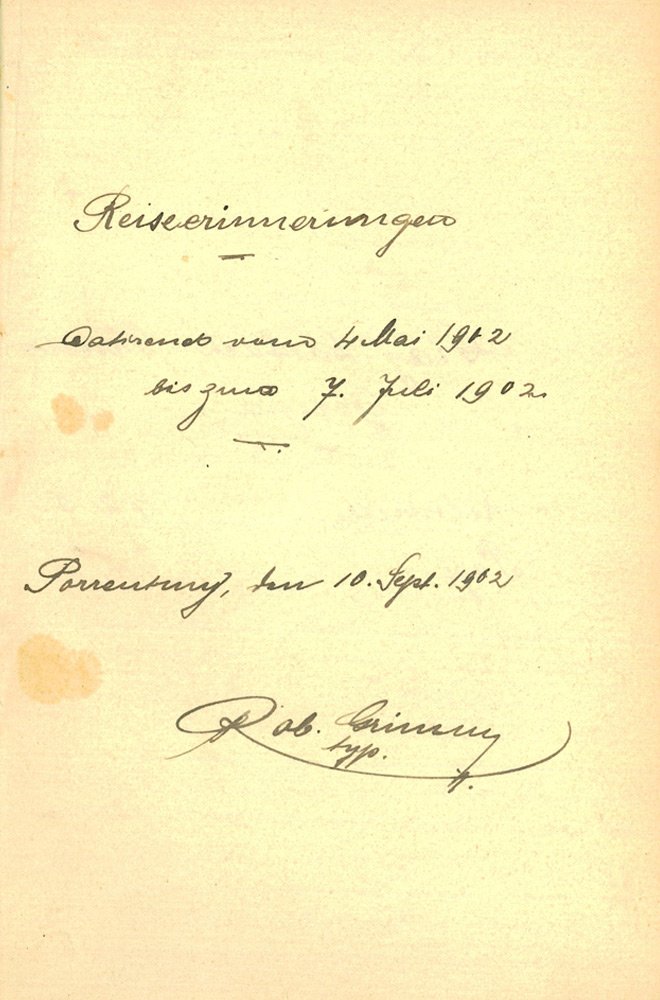 Reiseerinnerungen
Datirend vom 4 Mai 1902
bis zum 7. Juli 1902.
Porrentruy, den 10. Sept. 1902
Rob. Grimm
typ.